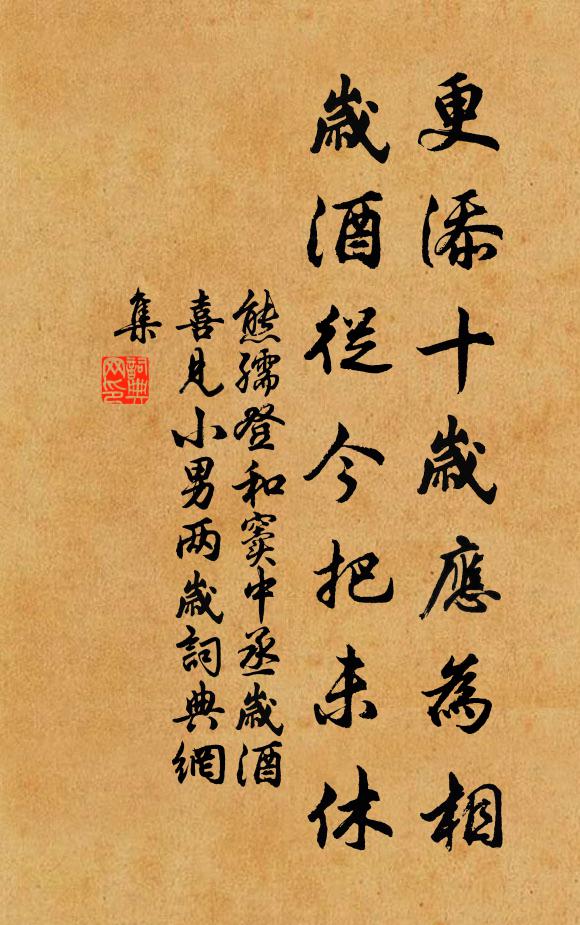 更添十歲應為相
歲酒從今把未休
熊孺登和竇中丞歲酒
喜見小男兩歲詞典網
集
詞典
网印